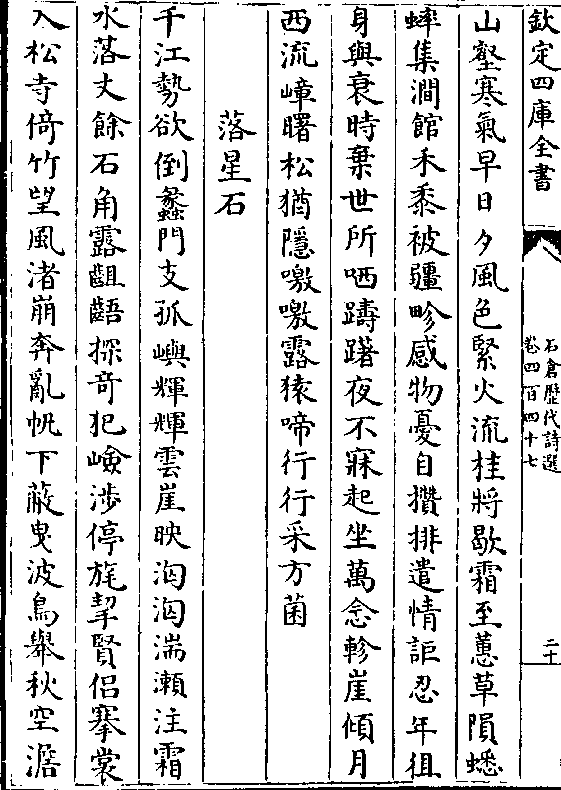 欽定四庫全書
石倉歷代詩選
卷四百四十七
二十
山壑寒氣早日夕風色緊火流桂將歇霜至蕙草隕蟋
蟀集澗館禾黍被疆畛感物憂自攢排遣情詎忍年徂
身與衰時棄世所哂躊躇夜不寐起坐萬念軫崖傾月
西流嶂曙松猶隱噭噭露猿啼行行采方菌
落星石
千江勢欲倒蠡門支孤嶼輝輝雲崖映洶洶湍瀨注霜
水落丈餘石角露齟齬探奇犯嶮涉停旄挈賢侶搴裳
入松寺倚竹望風渚崩奔亂帆下蔽曳波鳥舉秋空澹